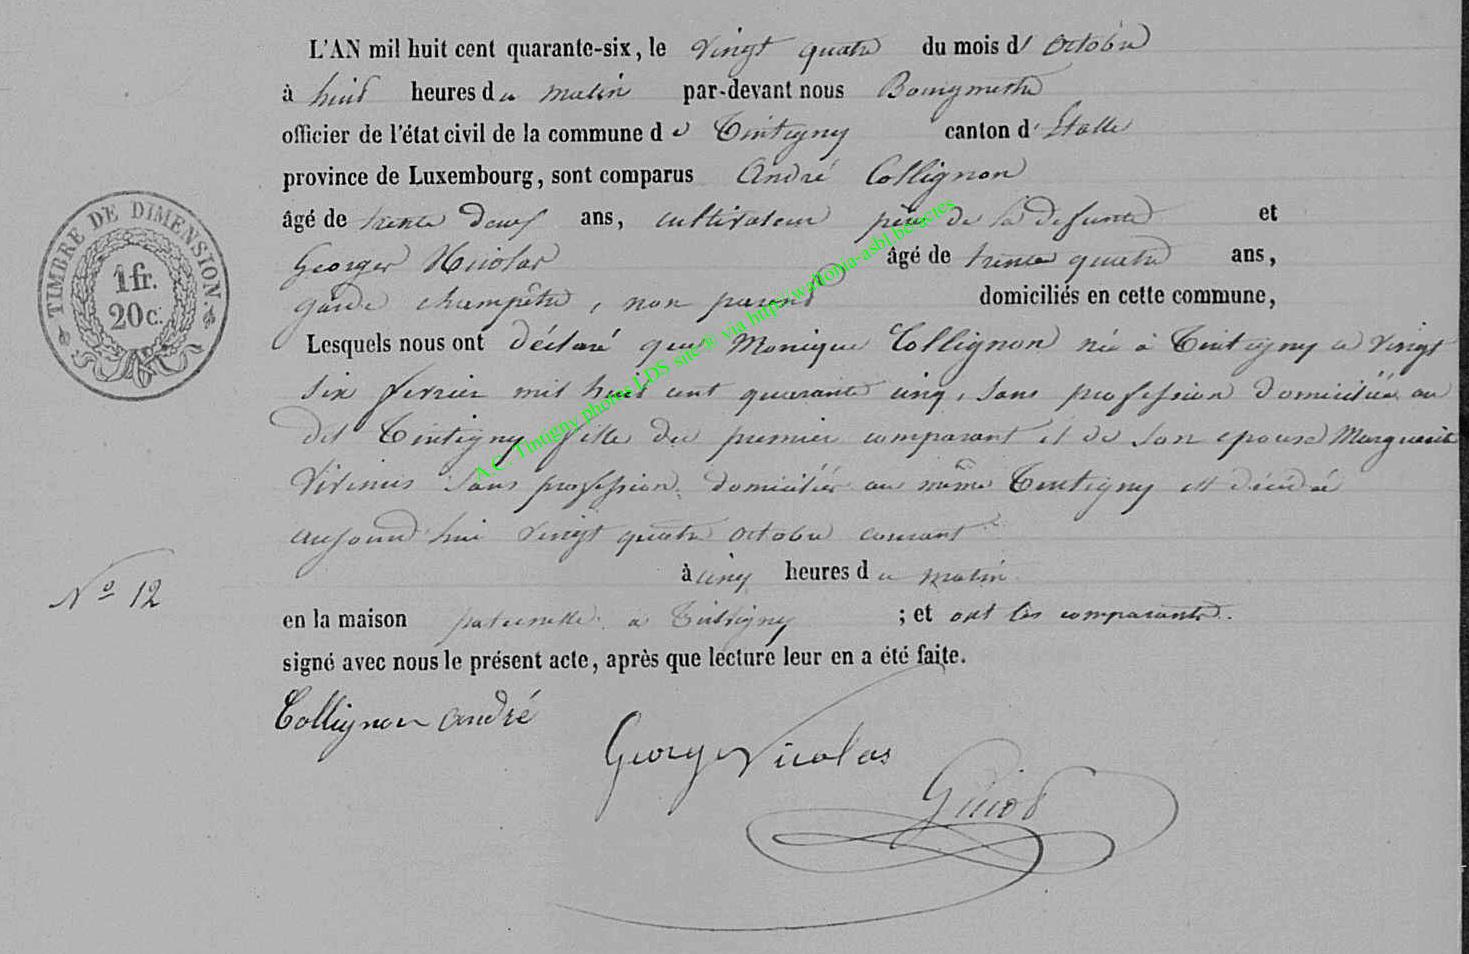 L'AN mil huit cent quarante-six, le vingt quatre du mois d' octobre
à huit heures du matin par-devant nous Bourgmestre
officier de l'état civil de la commune de Tintigny canton d'Etalle
province de Luxembourg, sont comparus André Collignon
âgé de trente deux ans, cultivateur père de la défunte et
Georges Nicolas âgé de trente quatre ans,
garde champêtre, non parent domiciliés en cette commune,
Lesquels nous ont déclaré que Monique Collignon née à Tintigny le vingt
six février mil huit cent quarante cinq, sans profession domiciliée au
dit Tintigny fille du premier comparant et de son epouse Marguerite
sans profession domiciliée au même Tintigny est décédée
aujourd'hui vingt quatre octobre courant
à cinq heures du matin
N° 12
en la maison paternelle à Tintigny ; et ont les comparants
signé avec nous le présent acte, après que lecture leur en a été faite.
Collignon andré
George Nicolas
Guiot
TIMBRE DE DIMENSION.
1 fr.
20 c.
A.C. Tintigny photos LDS site © via http://wallonia-asbl.be/actes